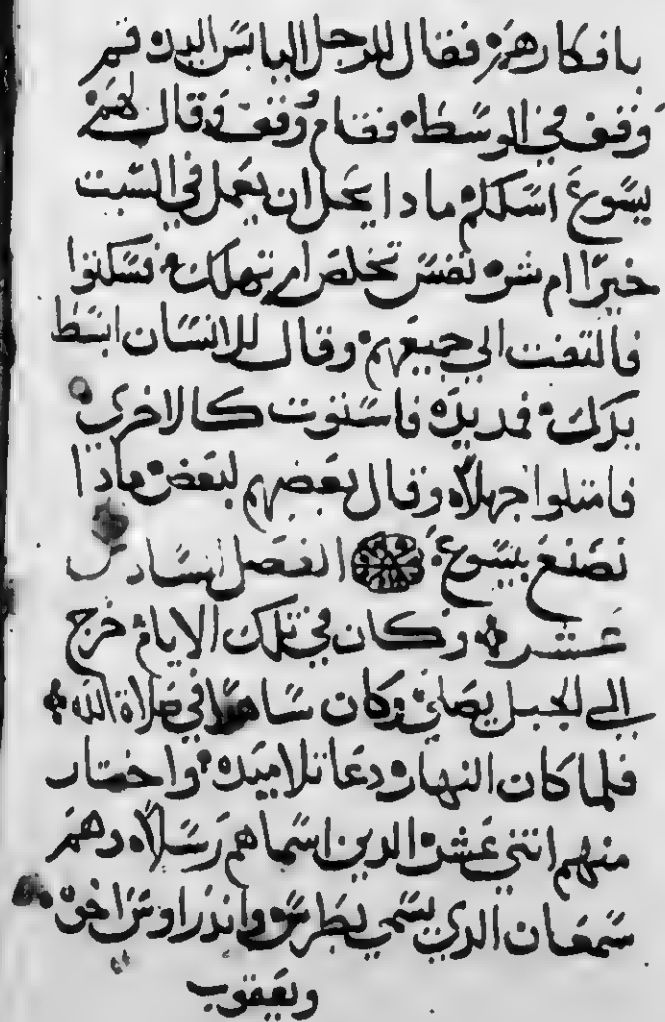 بافكارهم فقال للرجل اليابس اليد قم
وقف في الوسط فقام وقف وقال لهم
يسوع اسلكم مادا يحل ان يعمل في السبت
خيرًا ام شر نفس تخلص ام تهلك فسكتوا
فالتفت الي جميعهم وقال للانسان ابسط
يدك فمد يده فاستوت كالاخري
فامتلوا جهلاً وقال بعضهم لبعض مادا
نصنع بيسوع الفصل السادس
عشر وكان في تلك الايام خرج
الي الجبل يصلي وكان ساهرًا في صلاة الله
فلما كان النهار دعا تلاميده واختار
منهم اتني عشر الدين اسماهم رسلاً وهم
سمعان الدي يسمي بطرس واندراوس اخوه
ويعقوب